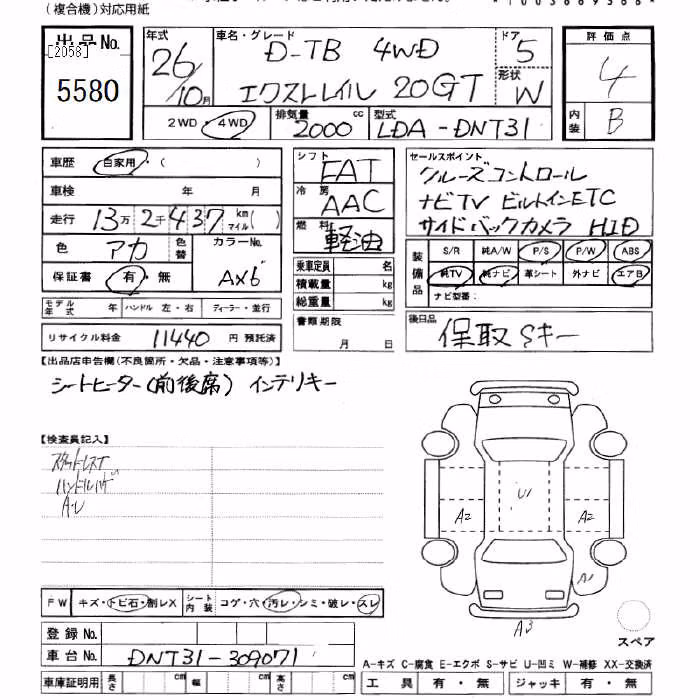 (複合機)対応用紙
出品No.
[2058]
5580
年式
26/10月
車名・グレード
D-TB 4WD
エクストレイル 20GT
ドア
5
形状
W
評価点
4
内装
B
2WD・4WD
排気量
2000 cc
型式
LDA-DNT31
車歴 自家用・( )
車検 年 月
走行 13万2千437 km マイル( )
色 アカ 色替
カラーNo.
AX6
保証書 有・無
シフト FAT
冷房 AAC
燃料 軽油
乗車定員 名
積載量 kg
総重量 kg
セールスポイント
クルーズコントロール
ナビTV ビルトインETC
サイドバックカメラ HID
装備品
S/R 純A/W P/S P/W ABS
純TV 純ナビ 革シート 外ナビ エアB
ナビ型番:
モデル年式 年 ハンドル 左・右 ディーラー・並行
リサイクル料金 11440 円 預託済
書類期限
月 日
後日品
保取Sキー
【出品店申告欄(不良箇所・欠品・注意事項等)】
シートヒーター(前後席) インテリキー
【検査員記入】
ハンドル
U1
A2
A2
A1
A3
スペア
FW キズ・トビ石・割レX シート内装 コゲ・穴・汚レ・シミ・破レ・スレ
登録No.
車台No. DNT31-309071
A-キズ C-腐食 E-エクボ S-サビ U-凹ミ W-補修 XX-交換済
車庫証明用 長さ cm 幅 cm 高さ cm
工具 有・無 ジャッキ 有・無